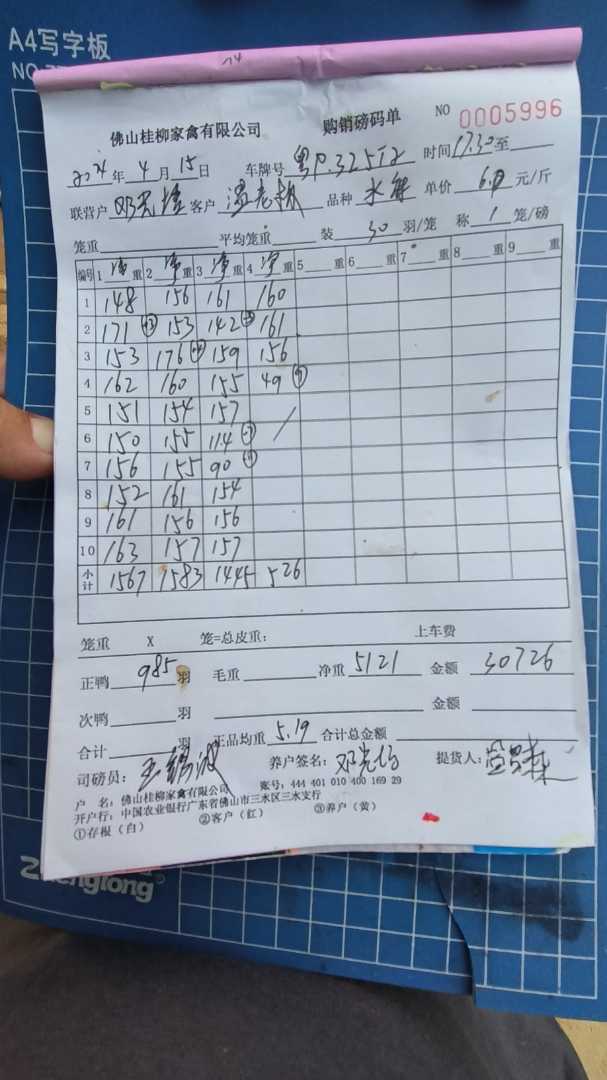 A4写字板
佛山桂柳家禽有限公司 购销磅码单 NO 0005996
2024年4月15日 车牌号 粤P.325T2 时间17.30至
联营户 客户 品种 水 单价 6.0 元/斤
笼重 平均笼重 装 30 羽/笼 称 1 笼/磅
编号 1 净重 2 净重 3 净重 4 净重 5 重 6 重 7 重 8 重 9 重
1 148 156 161 160
2 171 153 142 161
3 153 176 159 156
4 162 160 155 49
5 151 154 157
6 150 155 114
7 156 155 90
8 152 161 154
9 161 156 156
10 163 157 157
小计 1567 1583 1445 526
笼重 X 笼=总皮重: 上车费
正鸭 985 羽 毛重 净重 5121 金额 30726
次鸭 羽 金额
合计 羽 正品均重 5.19 合计总金额
司磅员: 养户签名: 提货人:
户 名: 佛山桂柳家禽有限公司 账号: 444 401 010 400 169 29
开户行: 中国农业银行广东省佛山市三水区三水支行
①存根(白) ②客户(红) ③养户(黄)